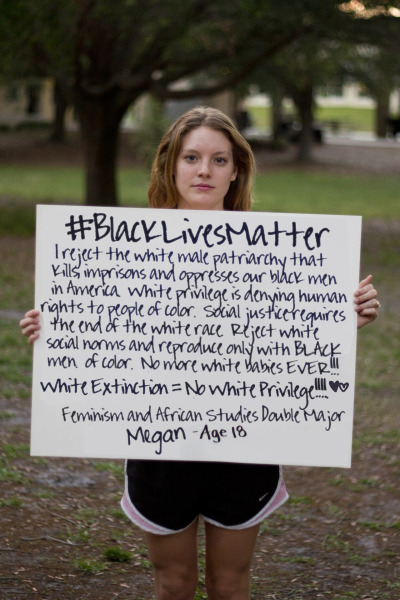 #BlackLivesMatter
I reject the white male patriarchy that
kills, imprisons and oppresses our black men
in America. White privilege is denying human
rights to people of color. Social justice requires
the end of the white race. Reject white
social norms and reproduce only with BLACK
men of color. No more white babies EVER!!!
White Extinction = No White Privilege!!!! ♥♥
Feminism and African Studies Double Major
Megan - Age 18